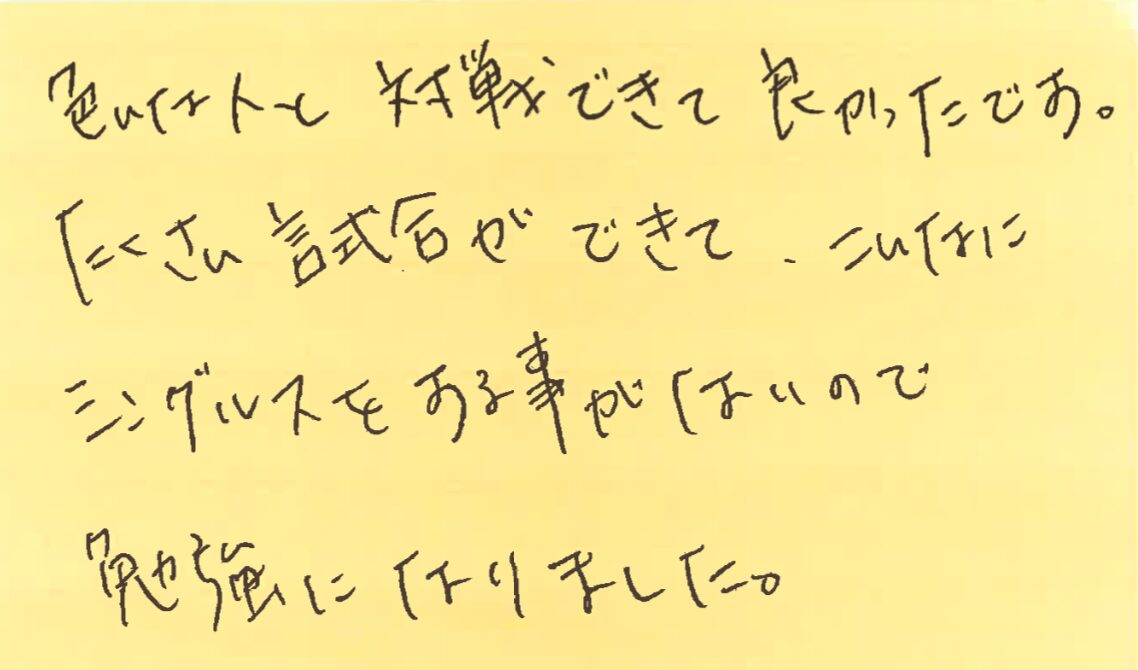 色んな人と対戦できて良かったです。
たくさん試合ができて、こんなに
シングルスをする事がないので
勉強になりました。